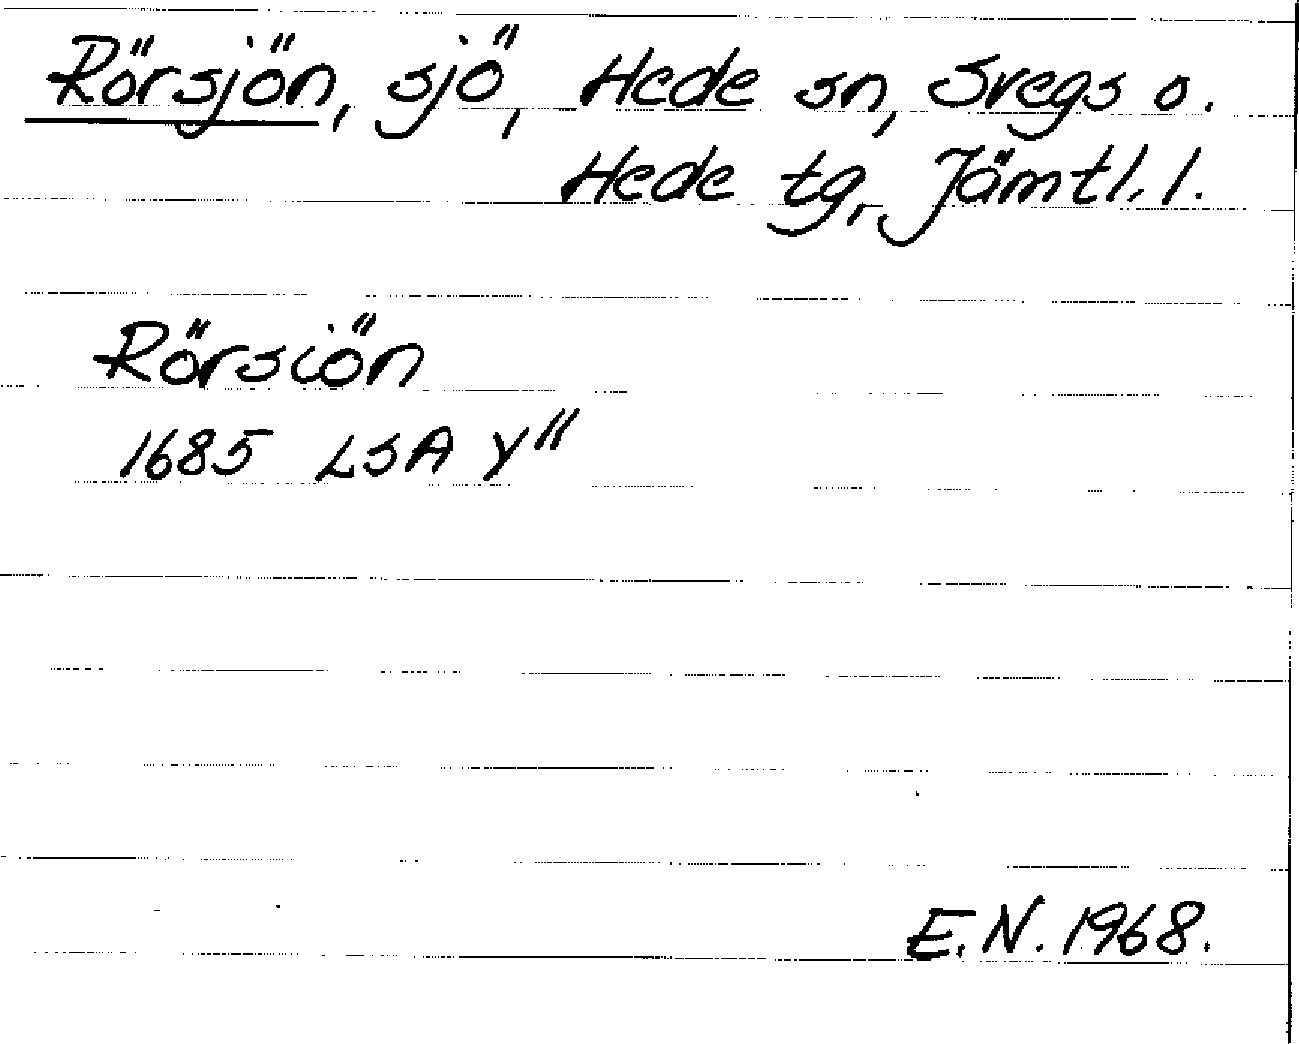 Rörsjön, sjö, Hede sn, Svegs o.
Hede tg, Jämtl. l.
Rörsiön
1685 LSA Y"
E.N. 1968.